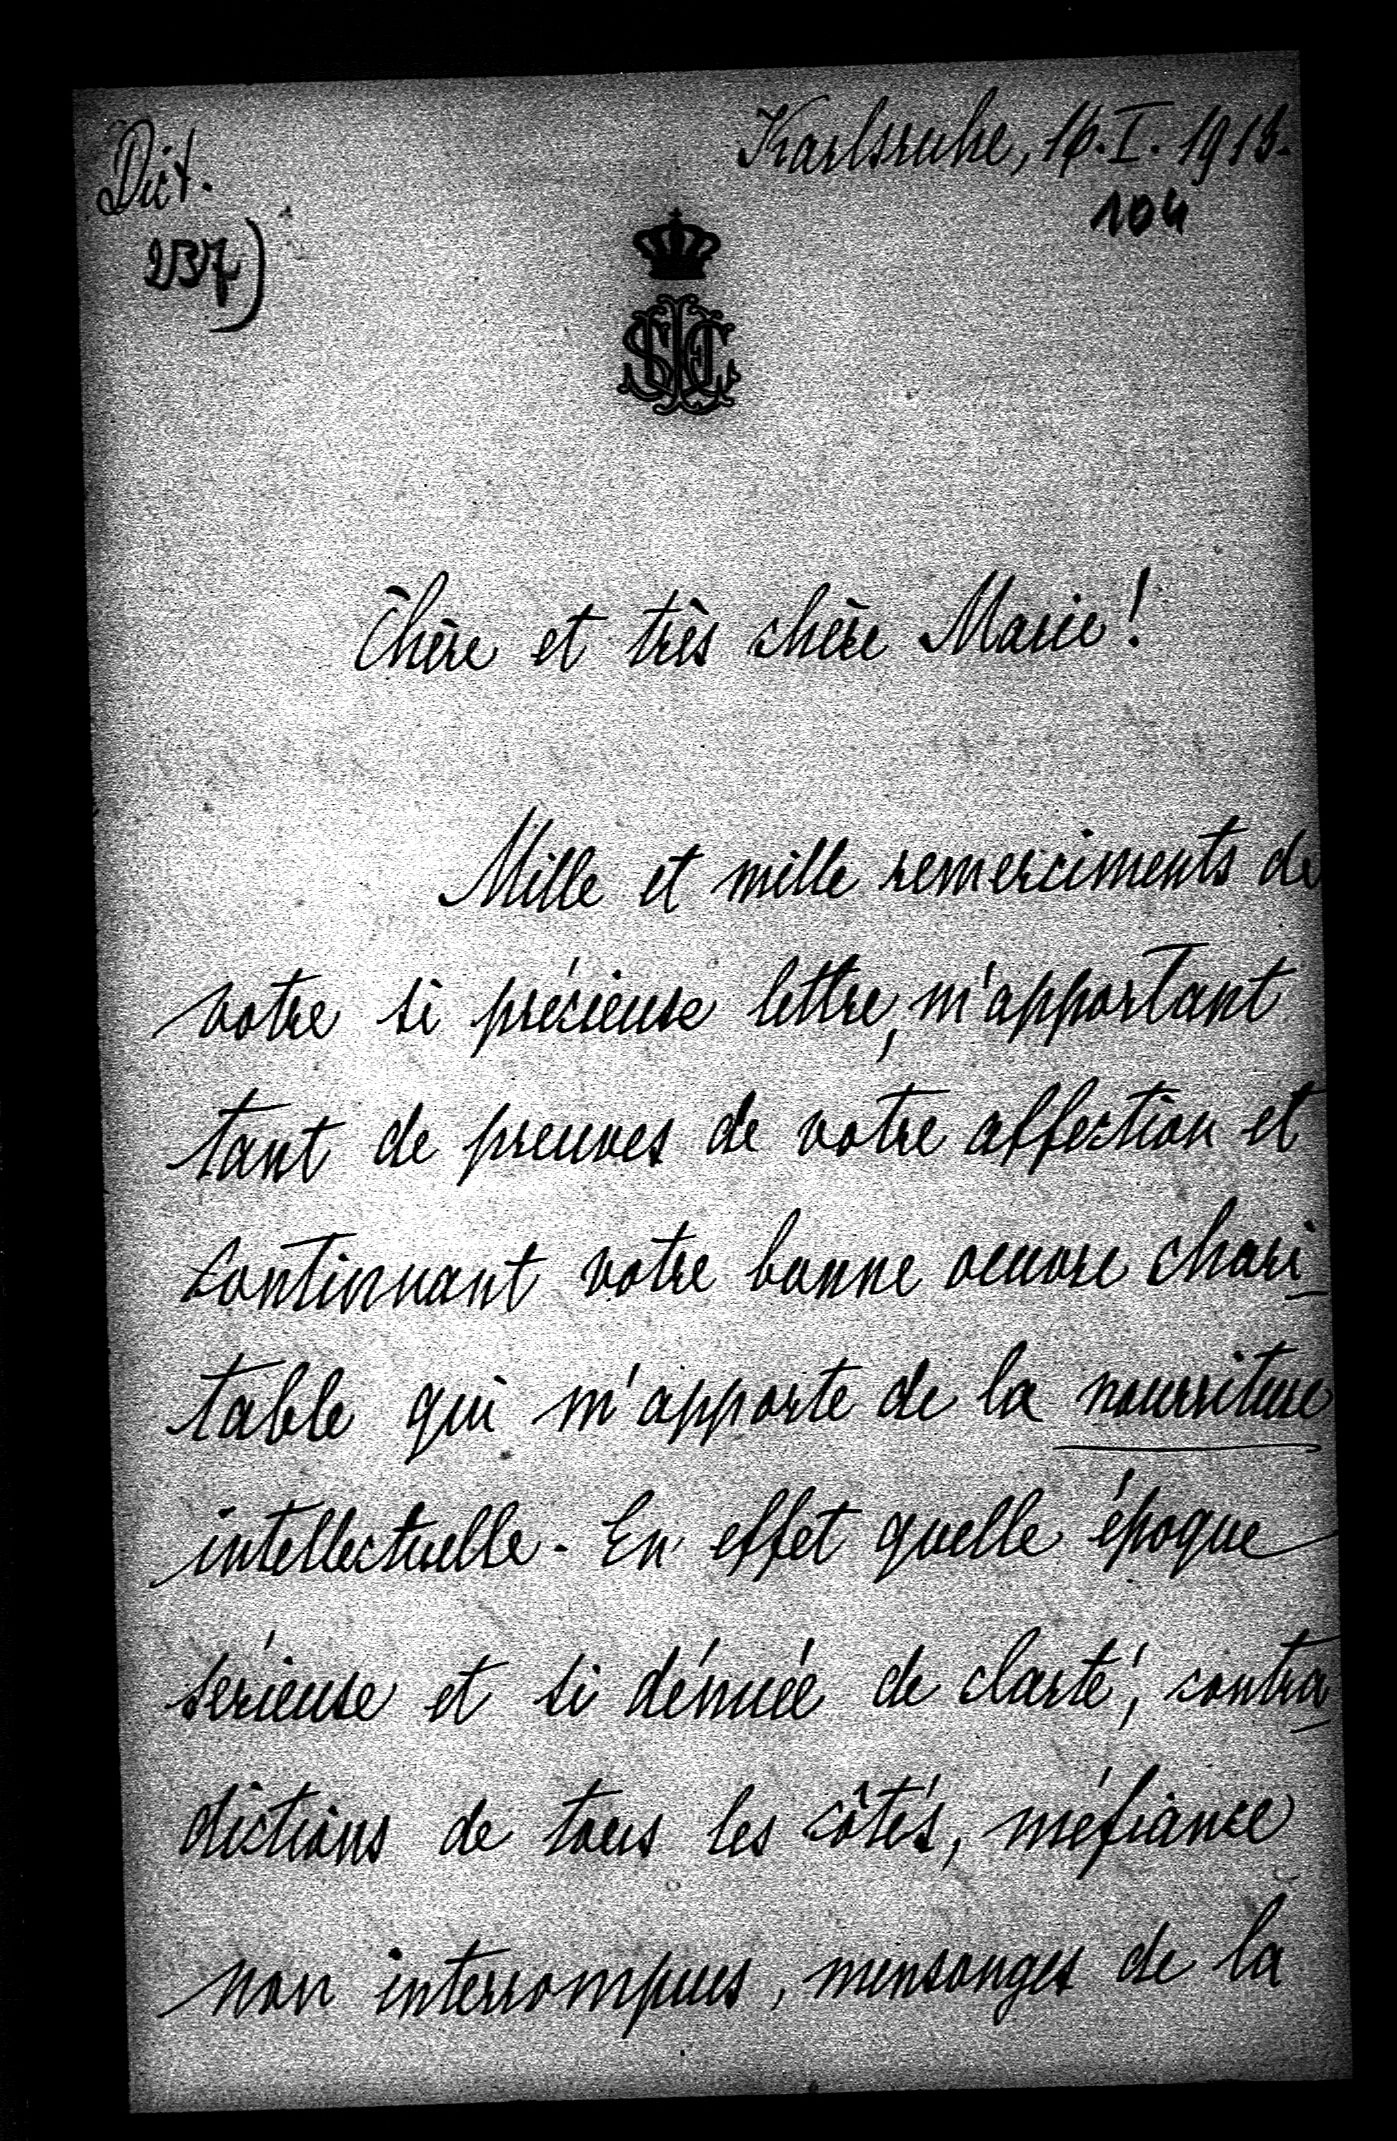 Dict. Karlsruhe, 16. I. 1913.
237) 104
Chère et très chère Marie!
Mille et mille remerciments de
votre si précieuse lettre, m'apportant
tant de preuves de votre affection et
continuant votre bonne oeuvre chari_
table qui m'apporte de la nourriture
intellectuelle. En effet quelle époque
sérieuse et si dénuée de clarté, contra_
dictions de tous les côtés, méfiance
non interrompues, mensonges de la